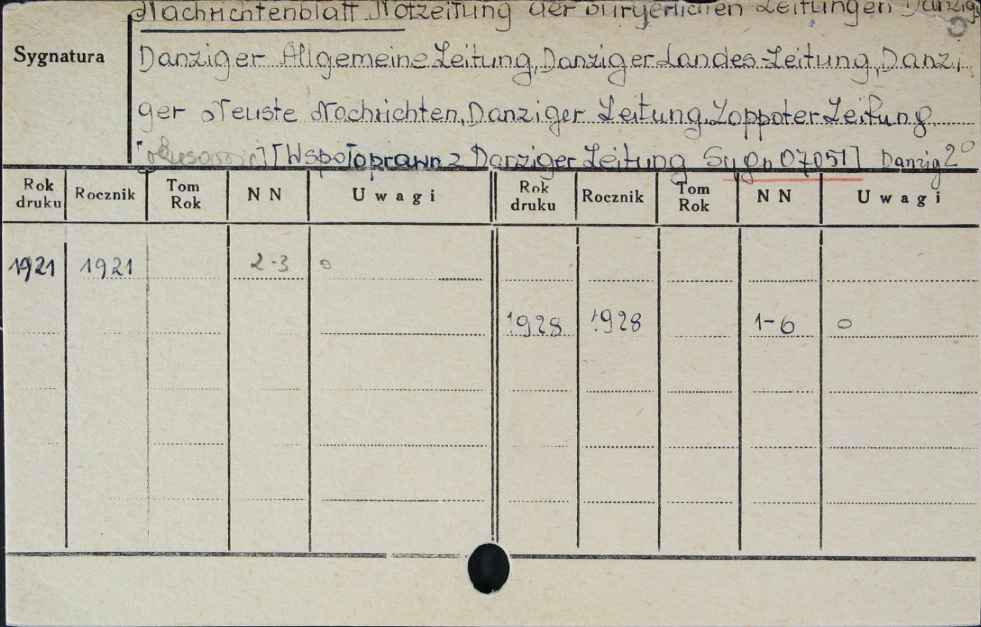 Nachrichtenblatt Notzeitung der bürgerlichen Zeitungen Danzigs
Sygnatura
Danziger Allgemeine Zeitung, Danziger Landes-Zeitung, Danzi-
ger Neuste Nachrichten, Danziger Zeitung, Zoppoter Zeitung
[Współoprawn z Danziger Zeitung Sygn 07051] Danzig 2°
Rok druku Rocznik Tom Rok NN Uwagi Rok druku Rocznik Tom Rok NN Uwagi
1921 1921 2-3 o
1928 1928 1-6 o